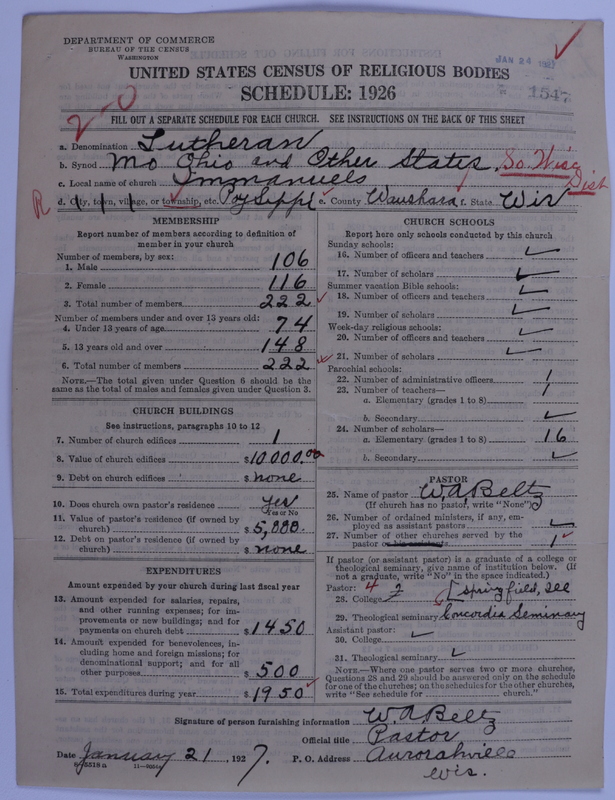 DEPARTMENT OF COMMERCE
BUREAU OF THE CENSUS
WASHINGTON
JAN 24 1927
1547
UNITED STATES CENSUS OF RELIGIOUS BODIES
SCHEDULE: 1926
2-0
FILL OUT A SEPARATE SCHEDULE FOR EACH CHURCH. SEE INSTRUCTIONS ON THE BACK OF THIS SHEET
a. Denomination Lutheran
b. Synod Mo Ohio and Other States. So. Wisc Dist
c. Local name of church Immanuels
R d. City, town, village, or township, etc. Mt Sippi e. County Waushara f. State Wis
MEMBERSHIP
Report number of members according to definition of member in your church
Number of members, by sex:
1. Male 106
2. Female 116
3. Total number of members 222
Number of members under and over 13 years old:
4. Under 13 years of age 74
5. 13 years old and over 148
6. Total number of members 222
NOTE.—The total given under Question 6 should be the same as the total of males and females given under Question 3.
CHURCH BUILDINGS
See instructions, paragraphs 10 to 12
7. Number of church edifices 1
8. Value of church edifices $10000.00
9. Debt on church edifices $none
10. Does church own pastor's residence yes
Yes or No
11. Value of pastor's residence (if owned by church) $5,000
12. Debt on pastor's residence (if owned by church) $none
EXPENDITURES
Amount expended by your church during last fiscal year
13. Amount expended for salaries, repairs, and other running expenses; for improvements or new buildings; and for payments on church debt $1450
14. Amount expended for benevolences, including home and foreign missions; for denominational support; and for all other purposes $500
15. Total expenditures during year $1950
CHURCH SCHOOLS
Report here only schools conducted by this church
Sunday schools:
16. Number of officers and teachers
17. Number of scholars
Summer vacation Bible schools:
18. Number of officers and teachers
19. Number of scholars
Week-day religious schools:
20. Number of officers and teachers
21. Number of scholars
Parochial schools:
22. Number of administrative officers 1
23. Number of teachers—
a. Elementary (grades 1 to 8) 1
b. Secondary
24. Number of scholars—
a. Elementary (grades 1 to 8) 16
b. Secondary
PASTOR
25. Name of pastor W.A Beltz
(If church has no pastor, write "None")
26. Number of ordained ministers, if any, employed as assistant pastors
27. Number of other churches served by the pastor 1
If pastor (or assistant pastor) is a graduate of a college or theological seminary, give name of institution below. (If not a graduate, write "No" in the space indicated.)
Pastor: 4 2
28. College [Springfield, Ill
29. Theological seminary Concordia Seminary
Assistant pastor:
30. College
31. Theological seminary
NOTE.—Where one pastor serves two or more churches, Questions 28 and 29 should be answered only on the schedule for one of the churches; on the schedules for the other churches, write "See schedule for church."
Signature of person furnishing information W A Beltz
Official title Pastor
Date January 21, 1927. P. O. Address Aurorahville
Wis.
8-5518 a